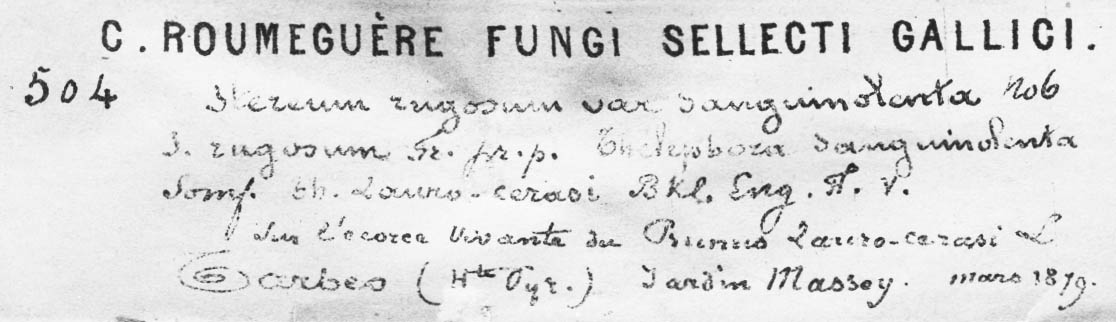 C. ROUMEGUÈRE FUNGI SELLECTI GALLICI.
504 Stereum rugosum var sanguinolenta Nob
S. rugosum Fr. pr.p. Thelephora sanguinolenta
Somf. Th. Lauro-cerasi Bkl. Eng. Fl. V.
Sur l'écorce vivante du Prunus Lauro-cerasi L
Tarbes (Htes Pyr.) Jardin Massey. mars 1879.